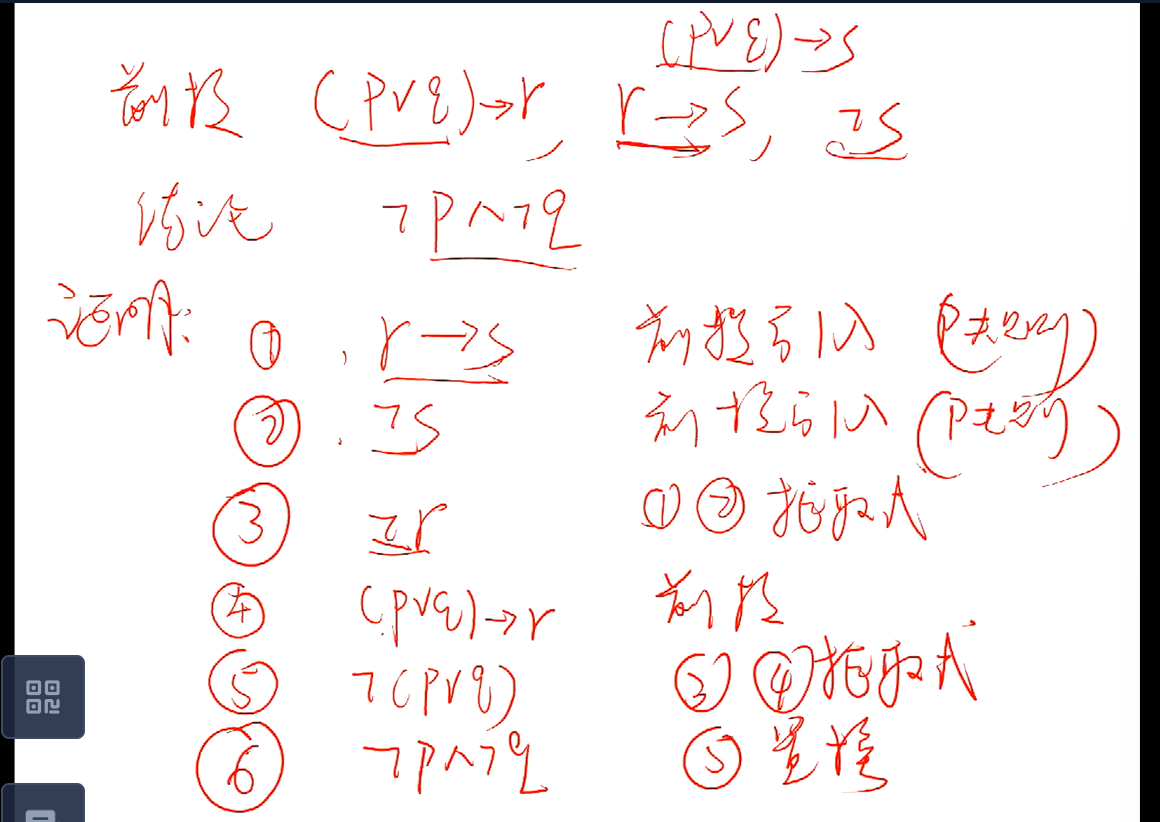 (p∨q)→s
前提 (p∨q)→r, r→s, ¬s
结论 ¬p∧¬q
证明:
① r→s 前提引入 (P规则)
② ¬s 前提引入 (P规则)
③ ¬r ①② 拒取式
④ (p∨q)→r 前提
⑤ ¬(p∨q) ③④拒取式
⑥ ¬p∧¬q ⑤ 置换